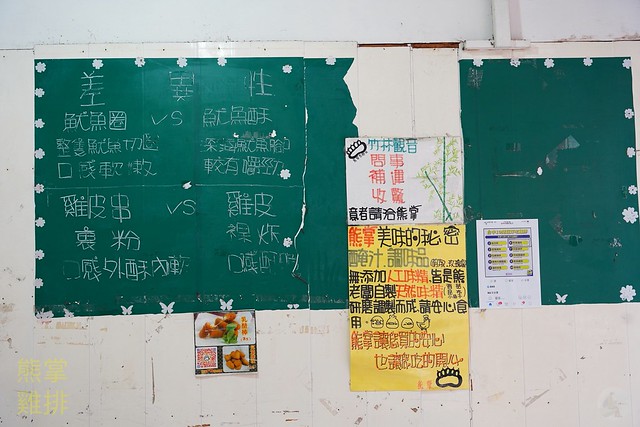 差異性
魷魚圈 VS 魷魚酥
整隻魷魚切圈
口感軟嫩
深海魷魚腳
較有嚼勁
雞皮串 VS 雞皮
裹粉
裸炸
口感外酥內軟
口感
竹林觀音
問事
補運
收驚
意者請洽熊掌
熊掌美味的秘密
醃汁.調味品
無添加人工味精,皆是熊
老闆自製天然味精
研磨調製而成.請安心食
用.
熊掌讓您買的安心
也讓您吃的開心
熊掌
熊掌
雞排